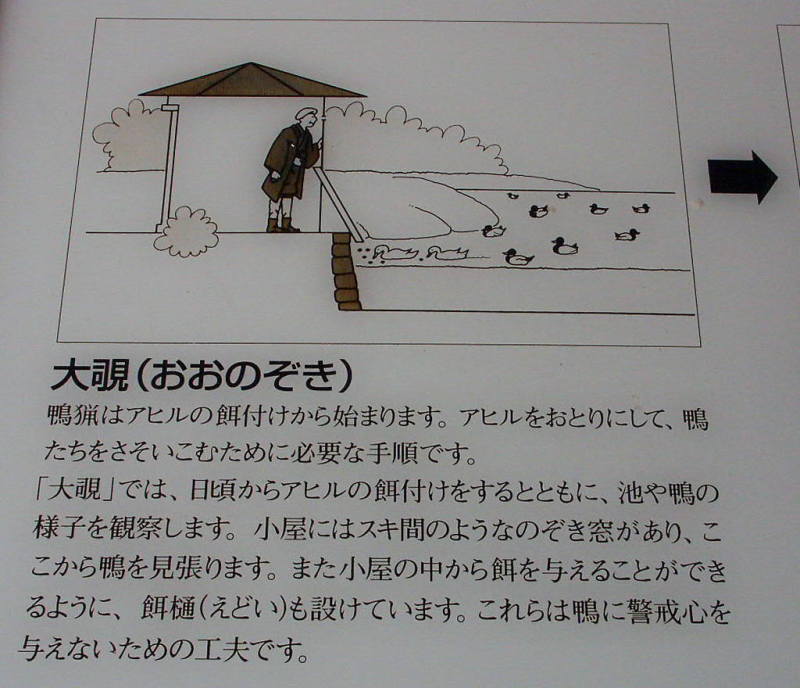 大覗（おおのぞき）
鴨猟はアヒルの餌付けから始まります。アヒルをおとりにして、鴨
たちをさそいこむために必要な手順です。
「大覗」では、日頃からアヒルの餌付けをするとともに、池や鴨の
様子を観察します。小屋にはスキ間のようなのぞき窓があり、こ
こから鴨を見張ります。また小屋の中から餌を与えることができ
るように、餌樋（えどい）も設けています。これらは鴨に警戒心を
与えないための工夫です。